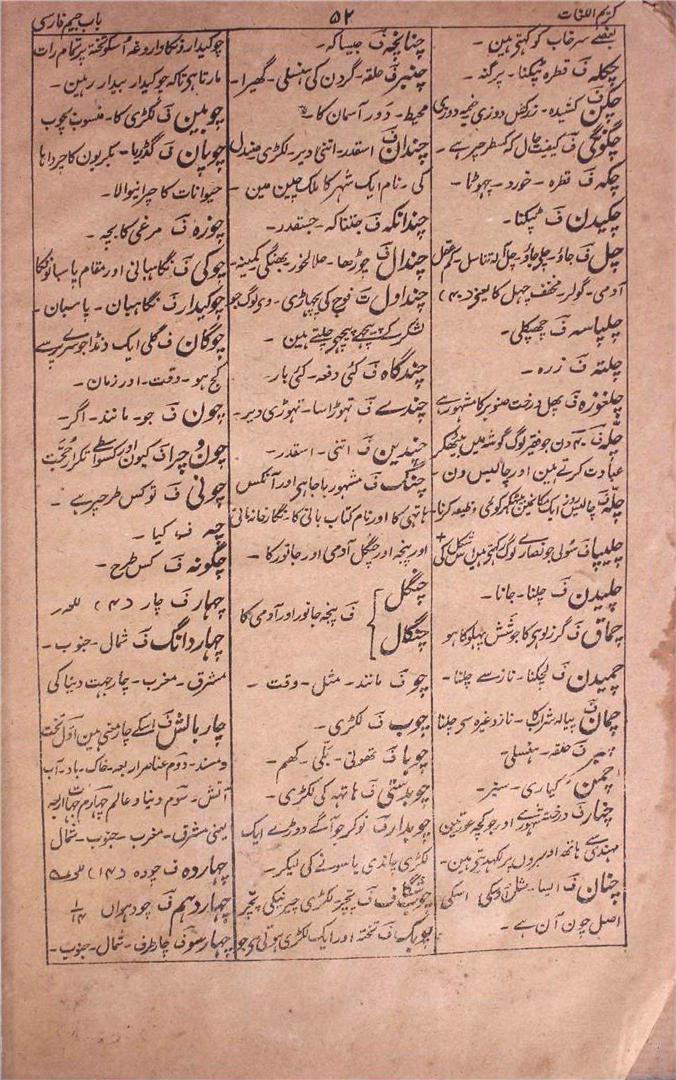 کریم اللغات
۵۲
باب جیم فارسی
بعضے سرخاب کو کہتے ہین -
چکلہ ف قطرہ ٹپکنا - پرگنہ -
چکن ف کشیدہ - زرکش دوزی خیمہ دوزی
چگونگی ف کیفیت حال کہ کسطرحپر ہے -
چکہ ف قطرہ - خورد - چھوٹا -
چکیدن ف ٹپکنا -
چل ف جاؤ - چلے جاؤ - کم عقل
آدمی - گولر - مخفف چہل کا یعنے (۴۰)
چلپاسہ ف چھپکلی -
چلتہ ف زرہ -
چلغوزہ ف پھل درخت صنوبر کا مشہور ہے
چلہ ف ۴۰ دن جو فقیر لوگ گوشہ مین بیٹھکر
عبادت کرتے ہین اور چالیس دن -
چلہ ف چالیس روز ایک مکانمین بیٹھکر کوئی وظیفہ کرنا
چلیپا ف سولی جو نصارے لوگ شکل کی +
چلیدن ف چلنا - جانا -
چماق ف گرز لوہے کا جو شش پہلو کا ہو
چمیدن ف لچکنا - ناز سے چلنا -
چمان ف پیالہ شراب کا - ناز وغیرہ سے چلنا
ف حلقہ - ہنسلی -
چمن ف کیاری - سبز -
چنار ف درخت مشہور ہے اور جو کچھ عورتین
مہندی سے ہاتھ اور سردن پر لکھتی ہین -
چنان ف ایسا - مثل اسکی
اصل چون آن ہے -
چنانچہ ف جیسا کہ -
چنبر ف حلقہ - گردن کی ہنسلی - گھیرا -
محیط - دور آسمان کا -
چندان ف اسقدر - اتنی دیر - لکڑی صندل
کی - نام ایک شہر کا ملک چین مین -
چندانکہ ف جتنا کہ - جسقدر -
چندال ف چوڑھا - حلالخور - بھنگی - کمینہ -
چنداول ت فوج کی پچھاڑی - وی لوگ جو
لشکر کے پیچھے پیچھے چلتے ہین -
چندگاہ ف کئی دفعہ - کئی بار -
چندے ف تھوڑا سا - تھوڑی دیر -
چندین ف اتنی - اسقدر -
چنگ ف مشہور باجا ہے اور آنکس
ہاتھی کا اور نام کتاب مانی کا - نگارخانہ مانی
اور پنجہ اور چنگل آدمی اور جانور کا -
چنگل
چنگال
ف پنجہ جانور اور آدمی کا
چو ف مانند - مثل - وقت -
چوب ف لکڑی -
چوبا ف تھونی - بلی - کھم -
چوبدستی ف ہاتھہ کی لکڑی -
چوبدار ف نوکر جو آگے دوڑے ایک
لکڑی چاندی یا سونے کی لیکر -
چوب شگاف ف پچر - لکڑی چیرنیکی پچر
چوبک ف تختہ اور ایک لکڑی ہوتی ہے جو
چوکیدارونکا داروغہ اسکو تختہ پر تمام رات
مارتا ہے تاکہ چوکیدار بیدار رہین -
چوبین ف لکڑی کا - منسوب بچوب
چوپان ف گڈریا - بکریون کا چرواہا
حیوانات کا چرانیوالا -
چوزہ ف مرغی کا بچہ -
چوکی ف نگاہبانی اور مقام پاسبانونکا
چوکیدار ف نگاہبان - پاسبان -
چوگان ف گلی ایک ڈنڈا جو سرے پر سے
کج ہو - وقت - اور زمان -
چون ف جو - مانند - اگر -
چون و چرا ف کیون اور کسواسطے تکرار حجت
چونی ف تو کس طرحپر ہے -
چہ ف کیا -
چگونہ ف کس طرح -
چہار ف چار (۴)
چہاردانگ ف شمال - جنوب -
مشرق - مغرب - چار جہت دنیا کی
چار بالش ف اسکے چار معنی ہین اول تخت
و مسند - دوم عناصر اربعہ - خاک - باد - آب
آتش - سوم دنیا و عالم چہارم جہات اربعہ
یعنی مشرق - مغرب - جنوب - شمال
چہاردہ ف چودہ (۱۴)
چہاردہم ف چودہواں ۱۴
چہارسو ف چارطرف - شمال - جنوب -